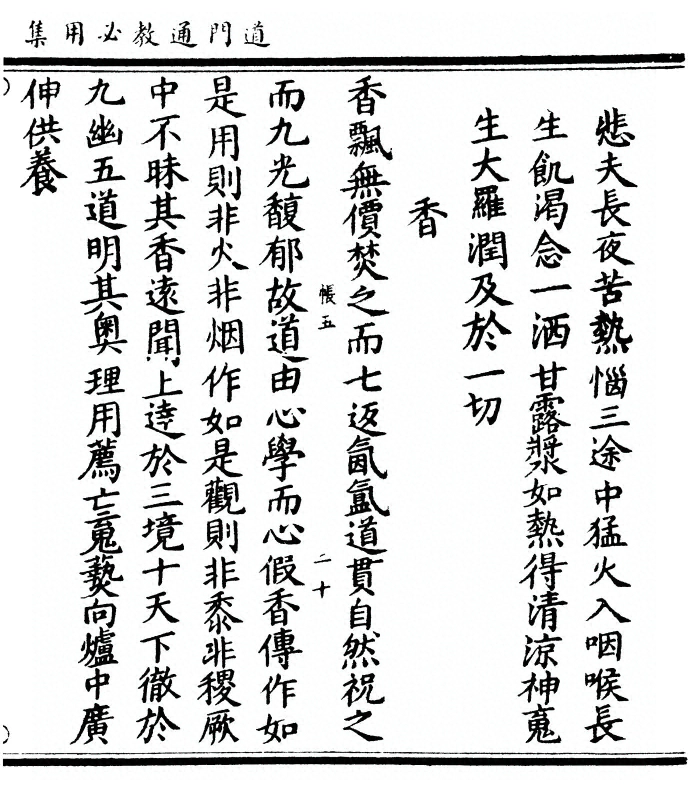 道門通教必用集
悲夫長夜苦熱惱三途中猛火入咽喉長
生飢渴念一洒甘露漿如熱得清涼神䰟
生大羅潤及於一切
香
香飄無價焚之而七返氤氳道貫自然祝之
帳五
二十
而九光馥郁故道由心學而心假香傳作如
是用則非火非烟作如是觀則非黍非稷厥
中不昧其香遠聞上達於三境十天下徹於
九幽五道明其奧理用薦亡䰟爇向爐中廣
伸供養